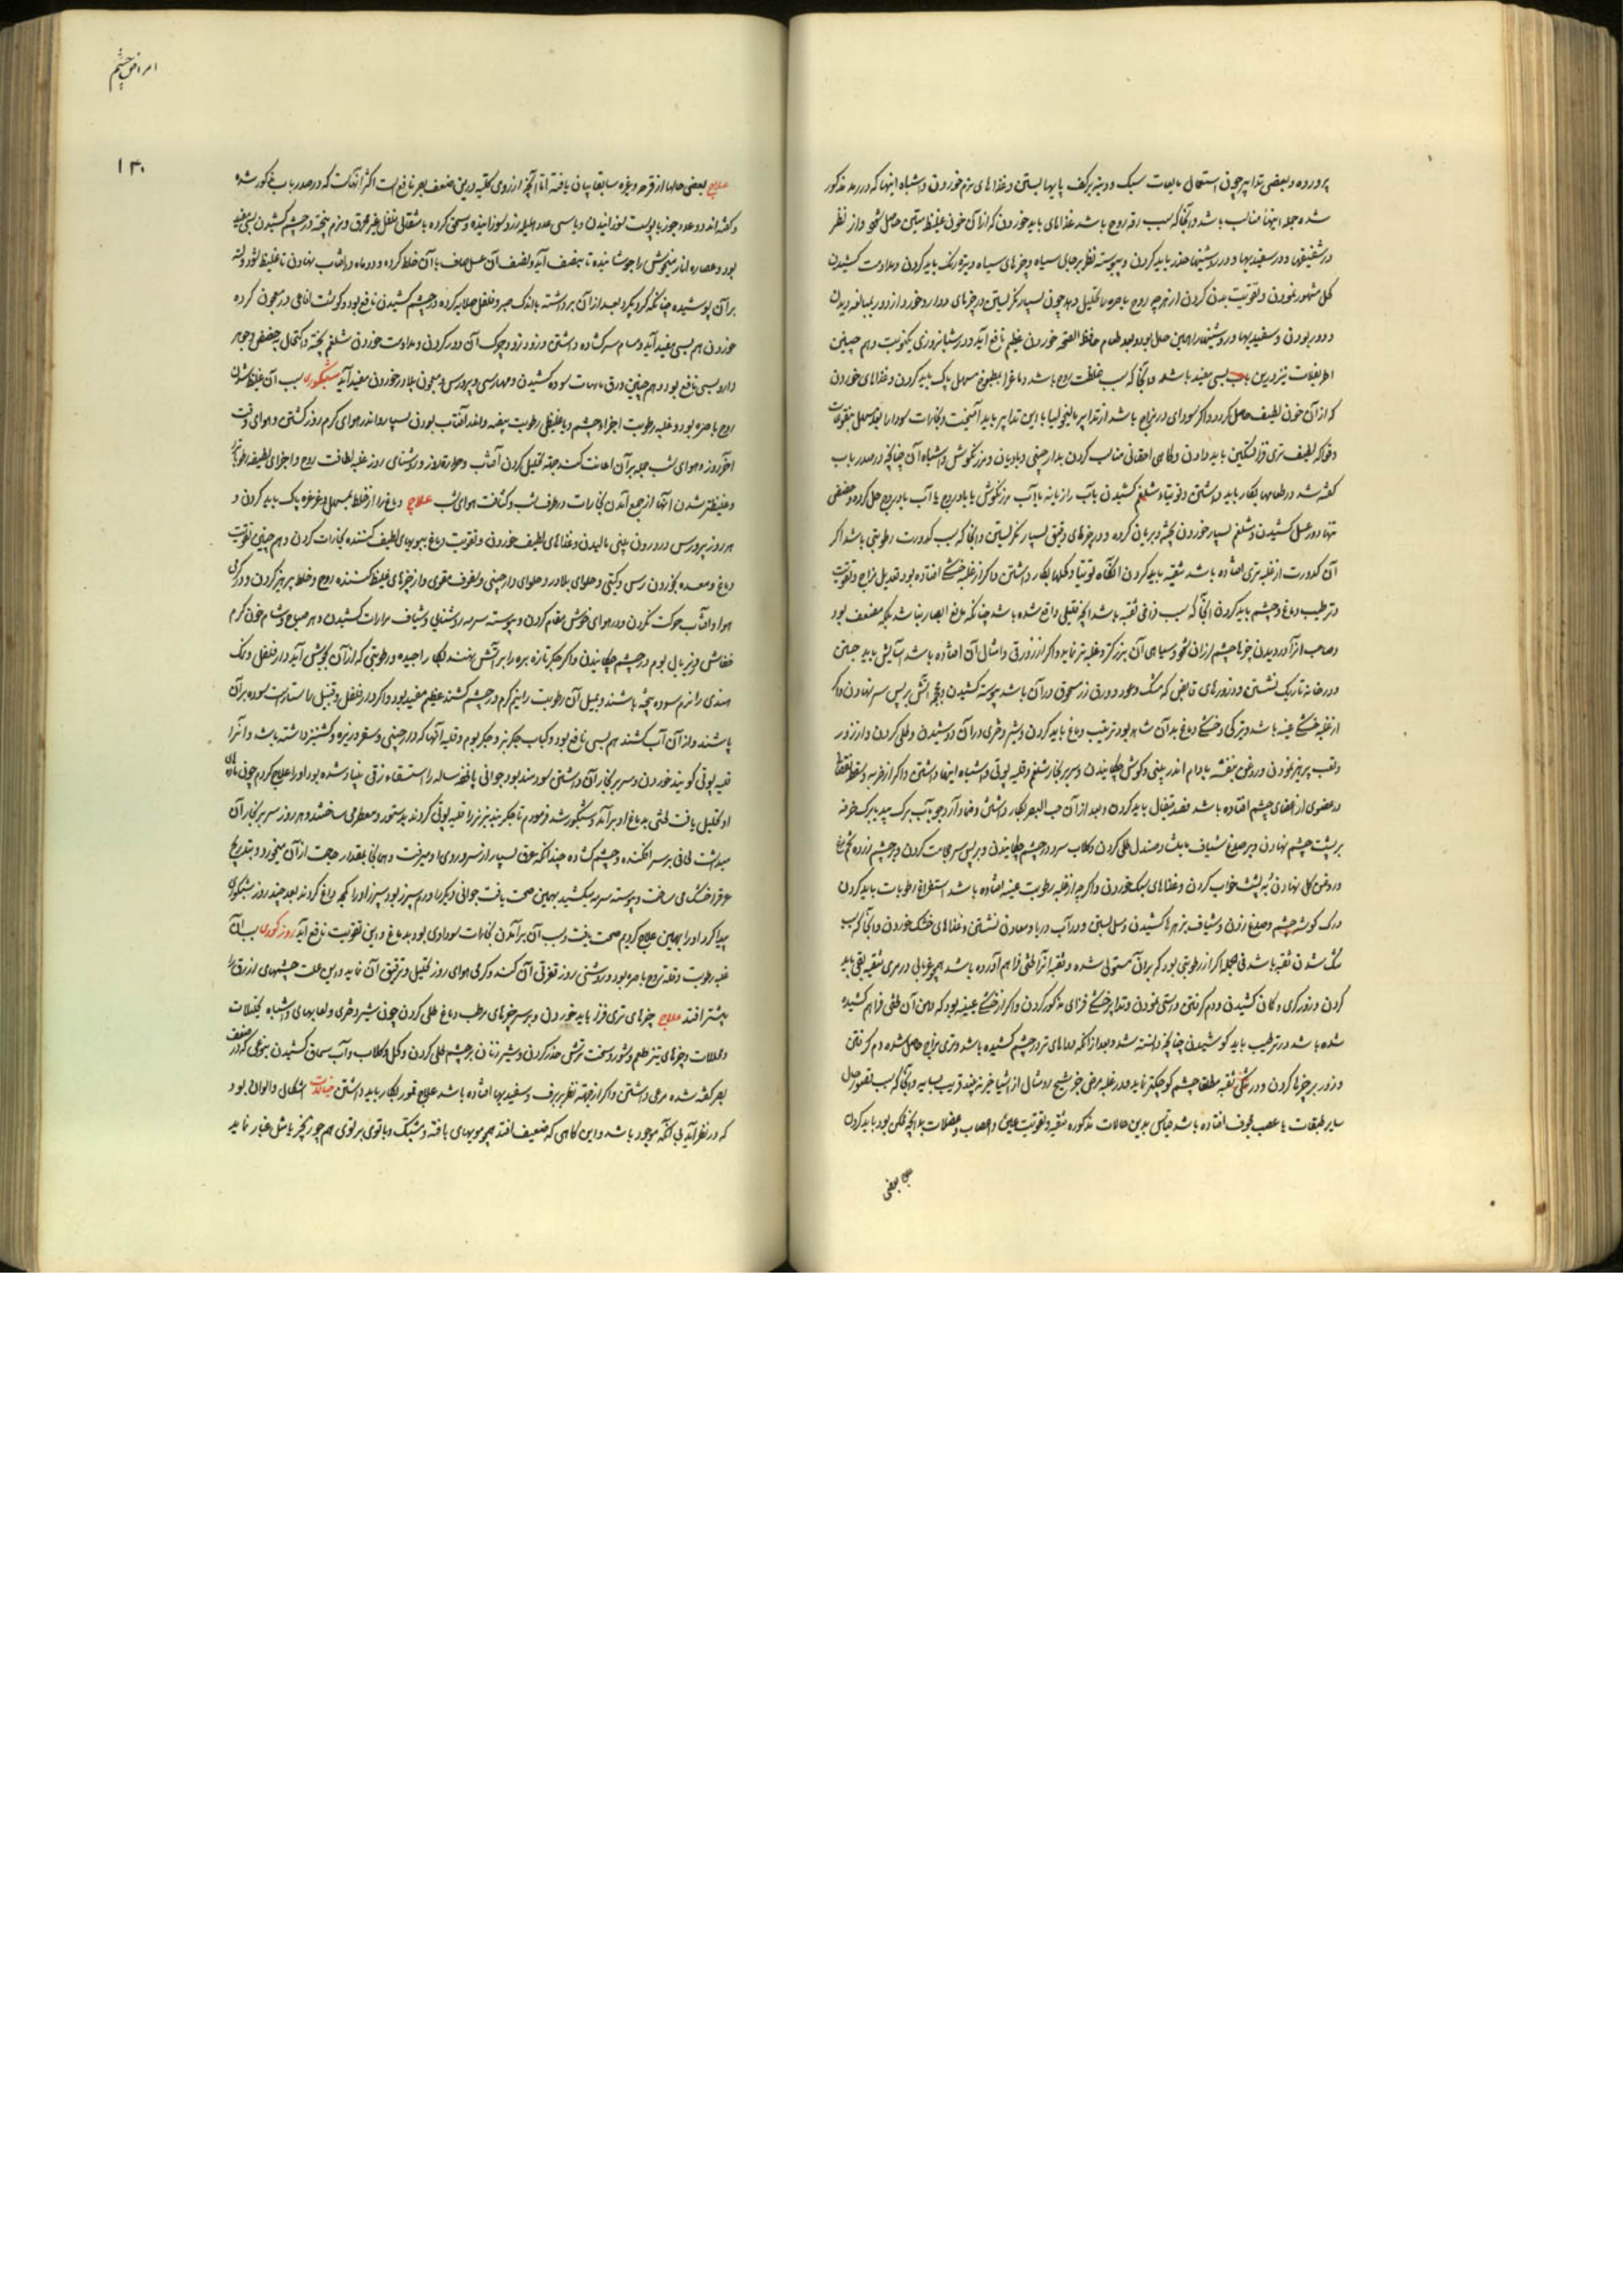 پرورده و بعضی تدابیر چون استعمال مایعات سبک و دینه برکف پایها بستن و غذاهای نرم خوردن و اشباه اینها که در رمد مذکور
شده جمله اینها مناسب باشد و آنجا که سبب رقه روح باشد غذاهای باید خوردن که از آن خون غلیظ متین حاصل شود و از نظر
در و در سفیدیها و در روشنیها حذر باید کردن و پیوسته نظر بر جای سیاه و چیزهای سیاه و تیره رنگ باید کردن و مداومت کشیدن
کحل مشهور نمودن و تقویت بدن کردن از هرچه روح باصره را تحلیل دهد چون بسیار نگریستن در چیزهای دوار و خورد از دور بمبالغه دیدن
و دور بودن و سفیدیها و روشنیها را همین حال بود و بعد طعام حافظ الصحه خوردن عظیم نافع آید و در شبانروزی یکنوبت و هم چنین
اطریفلات نیز درین باب بسی مفید باشد و آنجا که سبب غلظت روح باشد دماغ را بمطبوخ مسهل پاک باید کردن و غذاهای خوردن
که از آن خون لطیف حاصل گردد و اگر سودای در مزاج باشد از تدابیر مالیخولیا با این تدابیر باید آمیخت و بخارات سودا را
و فواکه لطیف تری فزا تسکین باید دادن و گاهی احقانی مناسب کردن بدارچینی و بادیان و مرزنگوش و اشباه آن چنانچه در صدر باب
گفته شد در طعامها بکار باید داشتن و توتیا و شلغم کشیدن بآب رازیانه یا آب مرزنگوش یا بادروج یا آب بادروج حل کرده و حضض
تنها در عسل کشیدن و شلغم بسیار خوردن پخته و بریان کرده و در چیزهای دقیق بسیار نگریستن و آنجا که سبب کدورت رطوبتی باشد اگر
آن کدورت از غلبه تری افتاده باشد تنقیه باید کردن آنگاه توتیا و کحلها بکار داشتن و اگر از غلبه خشکی افتاده بود تعدیل مزاج و تقویت
و ترطیب دماغ و چشم باید کردن آنجا که سبب فراخی ثقبه باشد آنچه قلیلی واقع شده باشد چنانکه مانع ابصار نباشد بلکه مضعف بود
و صاحب آنرا در دیدن چیزها چشم لرزان شود و سیاهی آن بزرگتر و غلبه تر نماید و اگر از زرقی و امثال آن افتاده باشد آسایش باید جستن
و در خانه تاریک نشستن و ذرورهای قابض که مشک و عود و ورق زر مسحوق در آن باشد پیوسته کشیدن و بر پس سر نهادن و اگر
از غلبه خشکی عینه باشد و تیرگی و خشکی دماغ بدان شاهد بود ترتیب دماغ باید کردن و شیر دختری در آن دوشیدن و طلی کردن و از زور
و تعب پرهیز نمودن و روغن بنفشه بادام اندر بینی و گوش چکانیدن و سر بر بخار شلغم و قلیه بوتی و اشباه اینها داشتن و اگر از ضربه و سقطه
در عضوی از اعضای چشم افتاده باشد فصد قیفال باید کردن و بعد از آن حب البصر بکار داشتن و ضماد آرد جو بآب برگ بید یا برگ خرفه
بر پشت چشم نهادن و بر صدغ شیاف مامیثا و صندل طلی کردن و گلاب سرد در چشم چکانیدن و بر پس سر حجامت کردن و بر چشم زرده تخم مرغ
و روغن گل نهادن به پشت خواب کردن و غذاهای سبک خوردن و اگرچه از غلبه رطوبت عینه افتاده باشد استفراغ رطوبات باید کردن
و رگ گوشه چشم و صدغ زدن و شیاف کشیدن و سل بستن و در آب دریا و معادن نشستن و غذاهای خشک خوردن و آنجا که سبب
تنگ شدن ثقبه باشد فی الجمله اگر از رطوبتی بود که بر آن مستولی شده و ثقبه آنرا فراهم آورده باشد همچو غربالی در مری تنقیه بقی باید
کردن و زورگری و کمان کشیدن و دم گرفتن و راستی نمودن و تدابیر خشکی فزای مذکور کردن و اگر از خشکی عینه بود که دهن آن فراهم کشیده
شده باشد در ترطیب باید کوشیدن چنانچه دانسته شد و بعد از آنکه دواهای تر در چشم کشیده باشد و تری مزاج حاصل شده دم گرفتن
و زور بر چیزها کردن و در تنگی ثقبه مطلقا چشم کوچکتر نماید و در غلبه مرض جز شبح و مثال از اشیا چیز نه بیند قریب بسایه و آنجا که سبب تصور حال
سایر طبقات یا عصب مجوف افتاده باشد قیاس بدین حالات مذکوره تنقیه و تقویت عین و اعصاب و عضلات بدانچه ممکن بود باید کردن
بعضی
امراض چشم
۱۳۰
علاج بعضی حالها از قرحه و غیره سابقا بیان یافته اما آنچه از روی کلیه درین ضعف بصر نافع است اکثر آنهاست که در صدر باب مذکور شده
و گفته اند دو عدد جوز با پوست سوزانیدن و با سی عدد هلیله زرد سوزانیده و سحق کرده با مثقالی فلفل غیر محرق و نرم پخته در چشم کشیدن بسی مفید
بود و عصاره انار میخوش را جوشانیده تا بنصف آید و نصف آن عسل صاف با آن خلط کرده و دو ماه در آفتاب نهادن تا غلیظ شود و لته
بر آن پوشیده چنانکه گرد نگیرد بعد از آن برداشته باندک صبر و فلفل صلایه کرده در چشم کشیدن نافع بود و گوشت افاعی در معجون کرده
خوردن هم بسی مفید آید و مسام سر گشاده داشتن و زود زود چرک آن دور کردن و مداومت خوردن شلغم پخته و اکتحال به حضض و جواهر
دارو بسی نافع بود و هم چنین ورق ماهیات سوده کشیدن و معجون بلادر خوردن مفید آید شبکوری سبب آن غلیظ شدن
روح باصره بود و غلبه رطوبت اجزاء چشم و یا غلیظی رطوبت بیضه و اندر آفتاب بودن بسیار و اندر هوای گرم روز گشتن و هوای وقت
آخر روز و هوای شب جمله بر آن اعانت کنند جهة تحلیل کردن آفتاب و حرارة روز و روشنای روز غلبه لطافت روح و اجزای لطیفه رطوبات
و غلیظتر شدن آنها از جمع آمدن بخارات در طرف شب و کثافت هوای شب علاج دماغ را از خلط بمسهل و غرغره پاک باید کردن و
هر روز پرورس در درون بینی مالیدن و غذاهای لطیف خوردن و تقویت دماغ ببویهای لطیف کننده بخارات کردن و هم چنین تقویت
دماغ و معده بخوردن و حلوای بلادر و حلوای دارچینی و سفوف مقوی و از چیزهای غلیظ کننده روح و خلط پرهیز کردن و در گرمی
هوا و آفتاب حرکت نکردن و در هوای خوش مقام کردن و پیوسته سرمه روشنایی و شیاف مرارات کشیدن و هر صباح و شام خون گرم
خفاش و زیر بال بوم در چشم چکانیدن و اگر جگر تازه بره را بر آتش نهند رطوبتی که از آن بجوش آید دار فلفل و نمک
هندی را نرم سوده بپخته باشند و بمیل آن رطوبت را نیم گرم در چشم کشند عظیم مفید بود و اگر دار فلفل و قنبیل راستاراست سوده بر آن
پاشند و از آن آب کشند هم بسی نافع بود و کباب جگر بز و جگر بوم و قلیه آنها که دارچینی و سعتر و زیره و کشنیز داشته باشد و آنرا
قلیه بوتی گویند خوردن و سر بر بخار آن داشتن سودمند بود جوانی پانزده ساله را استسقاء زقی پیدا شده بود او را علاج کردم چون ماده
او تحلیل یافت بدماغ او برآمد و شبکور شد فرمودم تا جگر بند بز نر را قلیه بوتی کردند بدستور و معطر می ساختند و هر روز سر بر بخار آن
میداشت لحافی بر سر افکنده و چشم گشاده چندانکه عرق بسیار از سر و روی او میرفت و بمقدار حاجت از آن میخورد و بتدریج
عرق را خشک می ساخت و پیوسته سرمه میکشید بهمین صحت یافت جوانی دیگر را ورم سپرز بود سپرز او را داغ کردند بعد چند روز شبکوری
پیدا کرد او را بهمین علاج کردیم صحت یافت و سبب آن برآمدن بخارات سوداوی بود بدماغ و این تقویت نافع آید روز کوری سبب آن
غلبه رطوبت و قلة روح باصره بود و روشنی روز تفرق آن کند و گرمی هوای روز تحلیل و ترقیق آن نماید و این علت چشمهای ازرق را
بیشتر افتد علاج چیزهای تری فزا باید خوردن و بر سر چیزهای مرطب دماغ طلی کردن چون شیر دختری و لعابهای و اشباه
و چیزهای تیز طعم و شور و سخت ترش حذر کردن و شیر زنان بر چشم طلی کردن و گل و گلاب و آب سماق کشیدن بنوعی که در ضعف
بصر گفته شده مرعی داشتن و اگر از جهة نظر ببرف و سفیدیها افتاده باشد علاج قمور بکار باید داشتن خیالات اشکال و الوان بود
که در نظر آید بی آنکه موجود باشد و این گاهی که ضعیف افتد همچو مویهای بافته و مشبک و یا توی بر توی هم چو زنجیر یا مثل غبار نماید